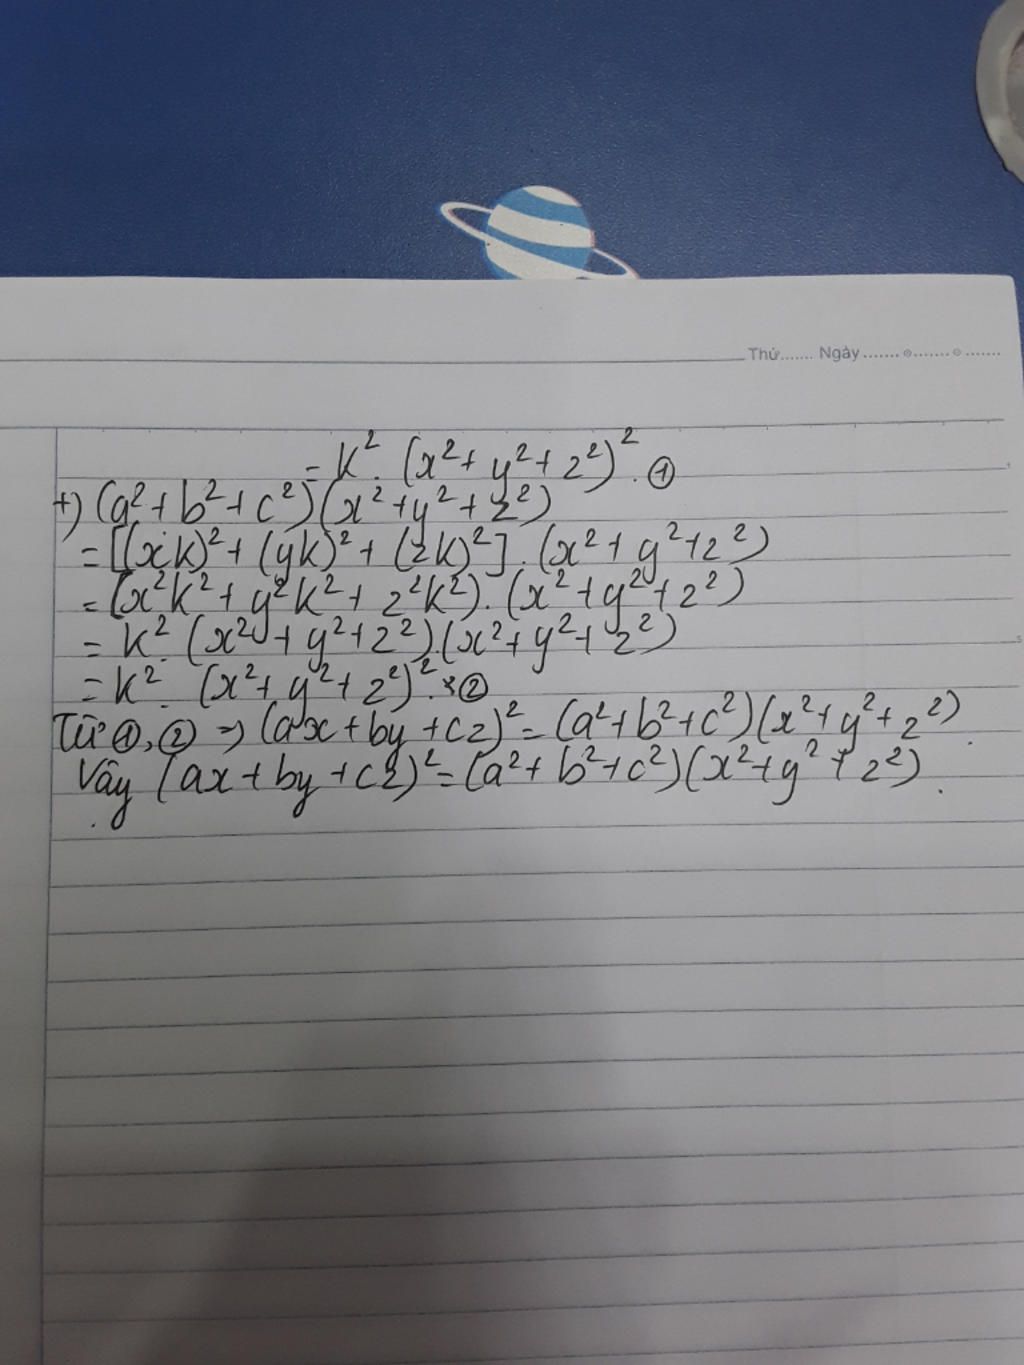 Thứ....... Ngày.......
= k². (x² + y² + z²)². ①
+) (a² + b² + c²)(x² + y² + z²)
= [(xk)² + (yk)² + (zk)²]. (x² + y² + z²)
= (x²k² + y²k² + z²k²). (x² + y² + z²)
= k². (x² + y² + z²)(x² + y² + z²)
= k². (x² + y² + z²)². ②
Từ ①, ② => (ax + by + cz)² = (a² + b² + c²)(x² + y² + z²).
Vậy (ax + by + cz)² = (a² + b² + c²)(x² + y² + z²).